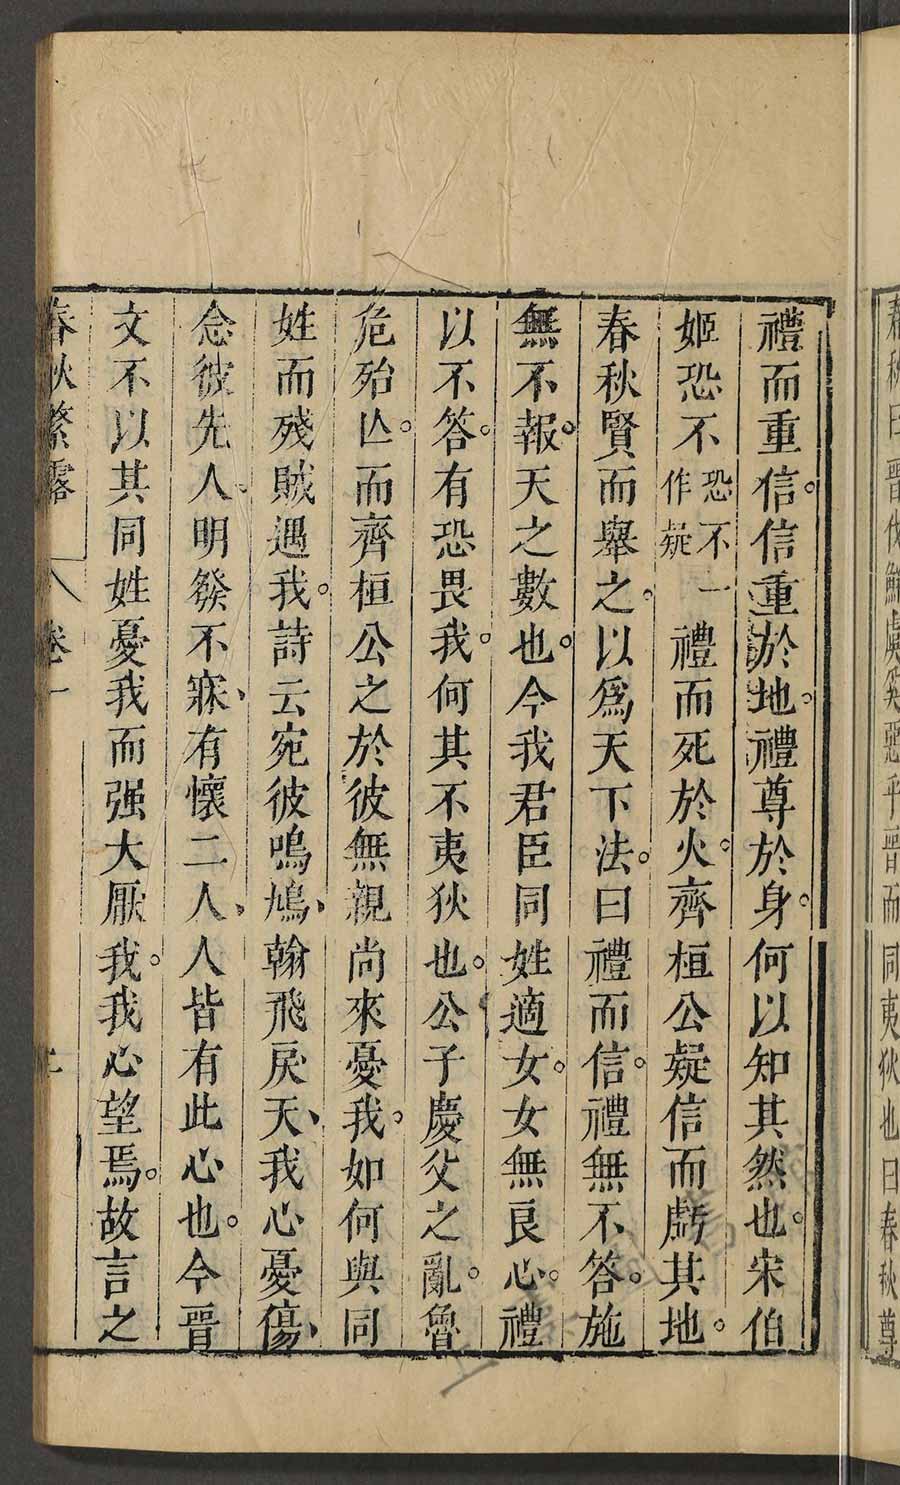 春秋曰晉伐鮮虞奚惡乎晉而同夷狄也曰春秋尊
禮而重信。信重於地。禮尊於身。何以知其然也。宋伯
姬恐不恐不一作疑禮而死於火。齊桓公疑信而虧其地。
春秋賢而舉之。以爲天下法。曰禮而信。禮無不答。施
無不報。天之數也。今我君臣同姓適女。女無良心。禮
以不答。有恐畏我。何其不夷狄也。公子慶父之亂。魯
危殆亾。而齊桓公之於彼無親。尚來憂我。如何與同
姓而殘賊遇我。詩云宛彼鳴鳩、翰飛戾天、我心憂傷、
念彼先人、明發不寐、有懷二人、人皆有此心也。今晉
文不以其同姓憂我而强大厭我。我心望焉。故言之
春秋繁露 卷一